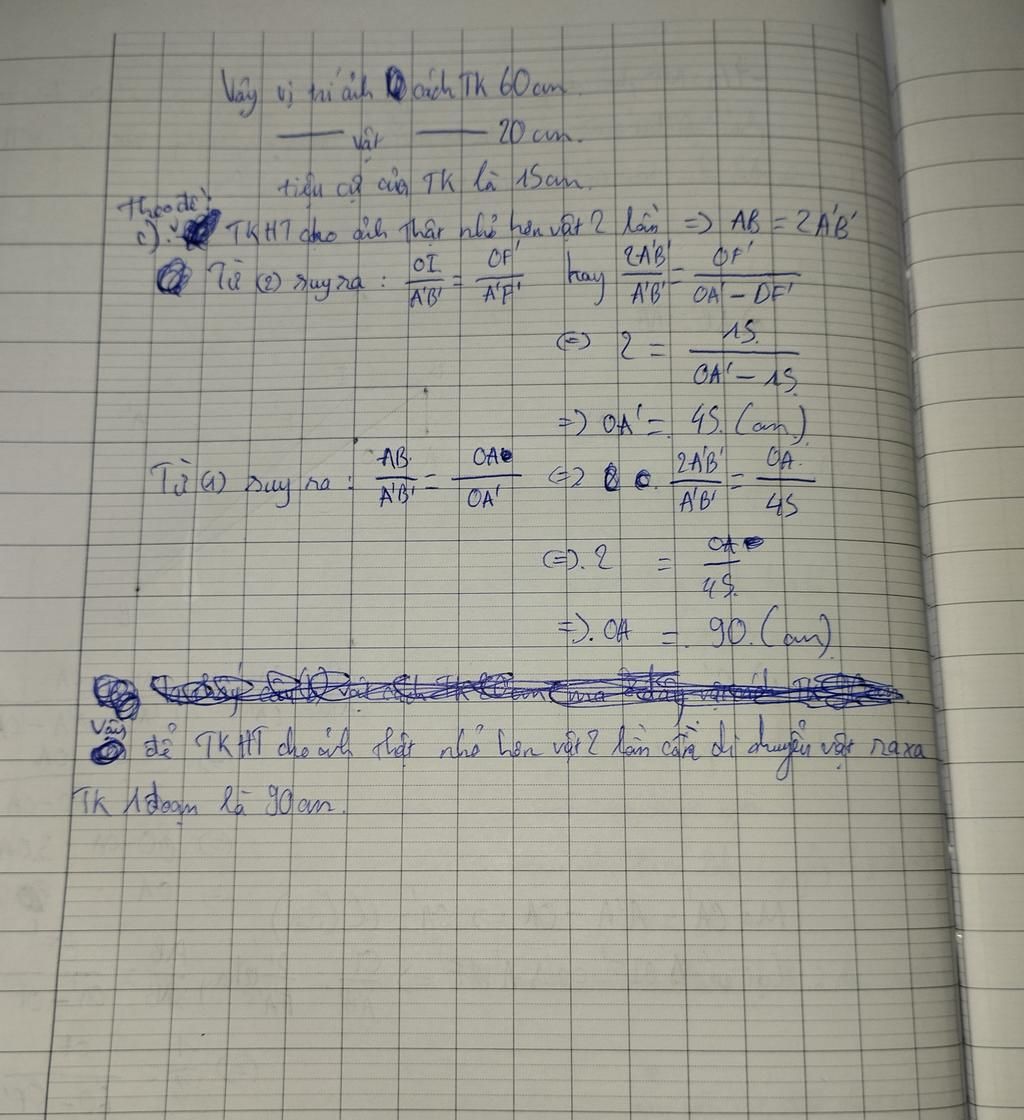 Vậy vị trí ảnh cách TK 60cm.
—— vật —— 20cm.
tiêu cự của TK là 15cm.
Theo đề:
c). TKHT cho ảnh thật nhỏ hơn vật 2 lần => AB = 2A'B'
Từ (2) suy ra : OI/A'B' = OF'/A'F' hay 2A'B'/A'B' = OF'/OA' - OF'
<=> 2 = 15/OA' - 15
=> OA' = 45 (cm)
Từ (1) suy ra : AB/A'B' = OA/OA' <=> 2A'B'/A'B' = OA/45
<=>. 2 = OA/45
=>. OA = 90 (cm)
Vậy
để TKHT cho ảnh thật nhỏ hơn vật 2 lần cần di chuyển vật ra xa
TK 1 đoạn là 90cm.